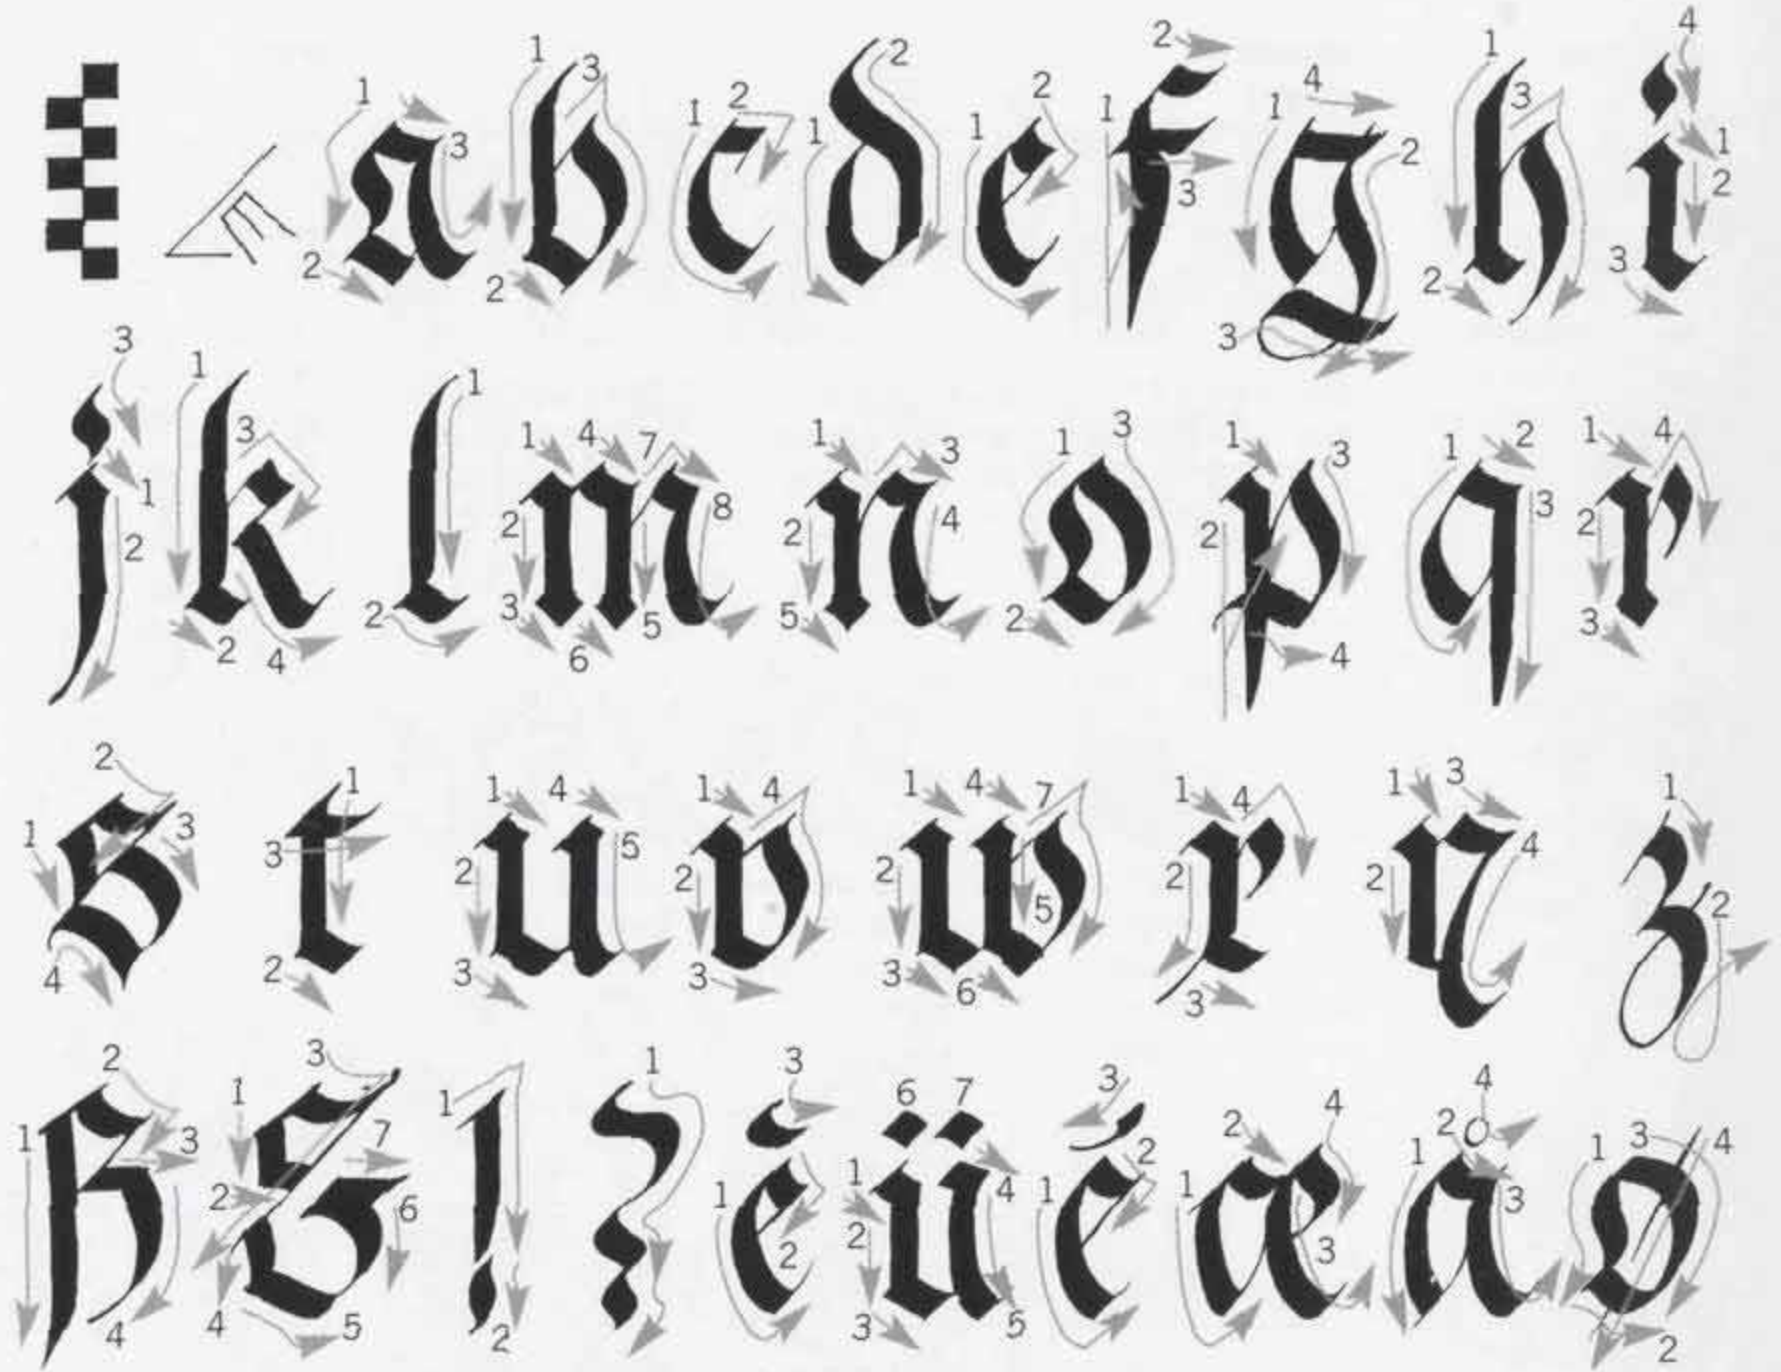 a b c d e f g h i
j k l m n o p q r
s t u v w x y z
ß & ! ? è ü é æ å ø